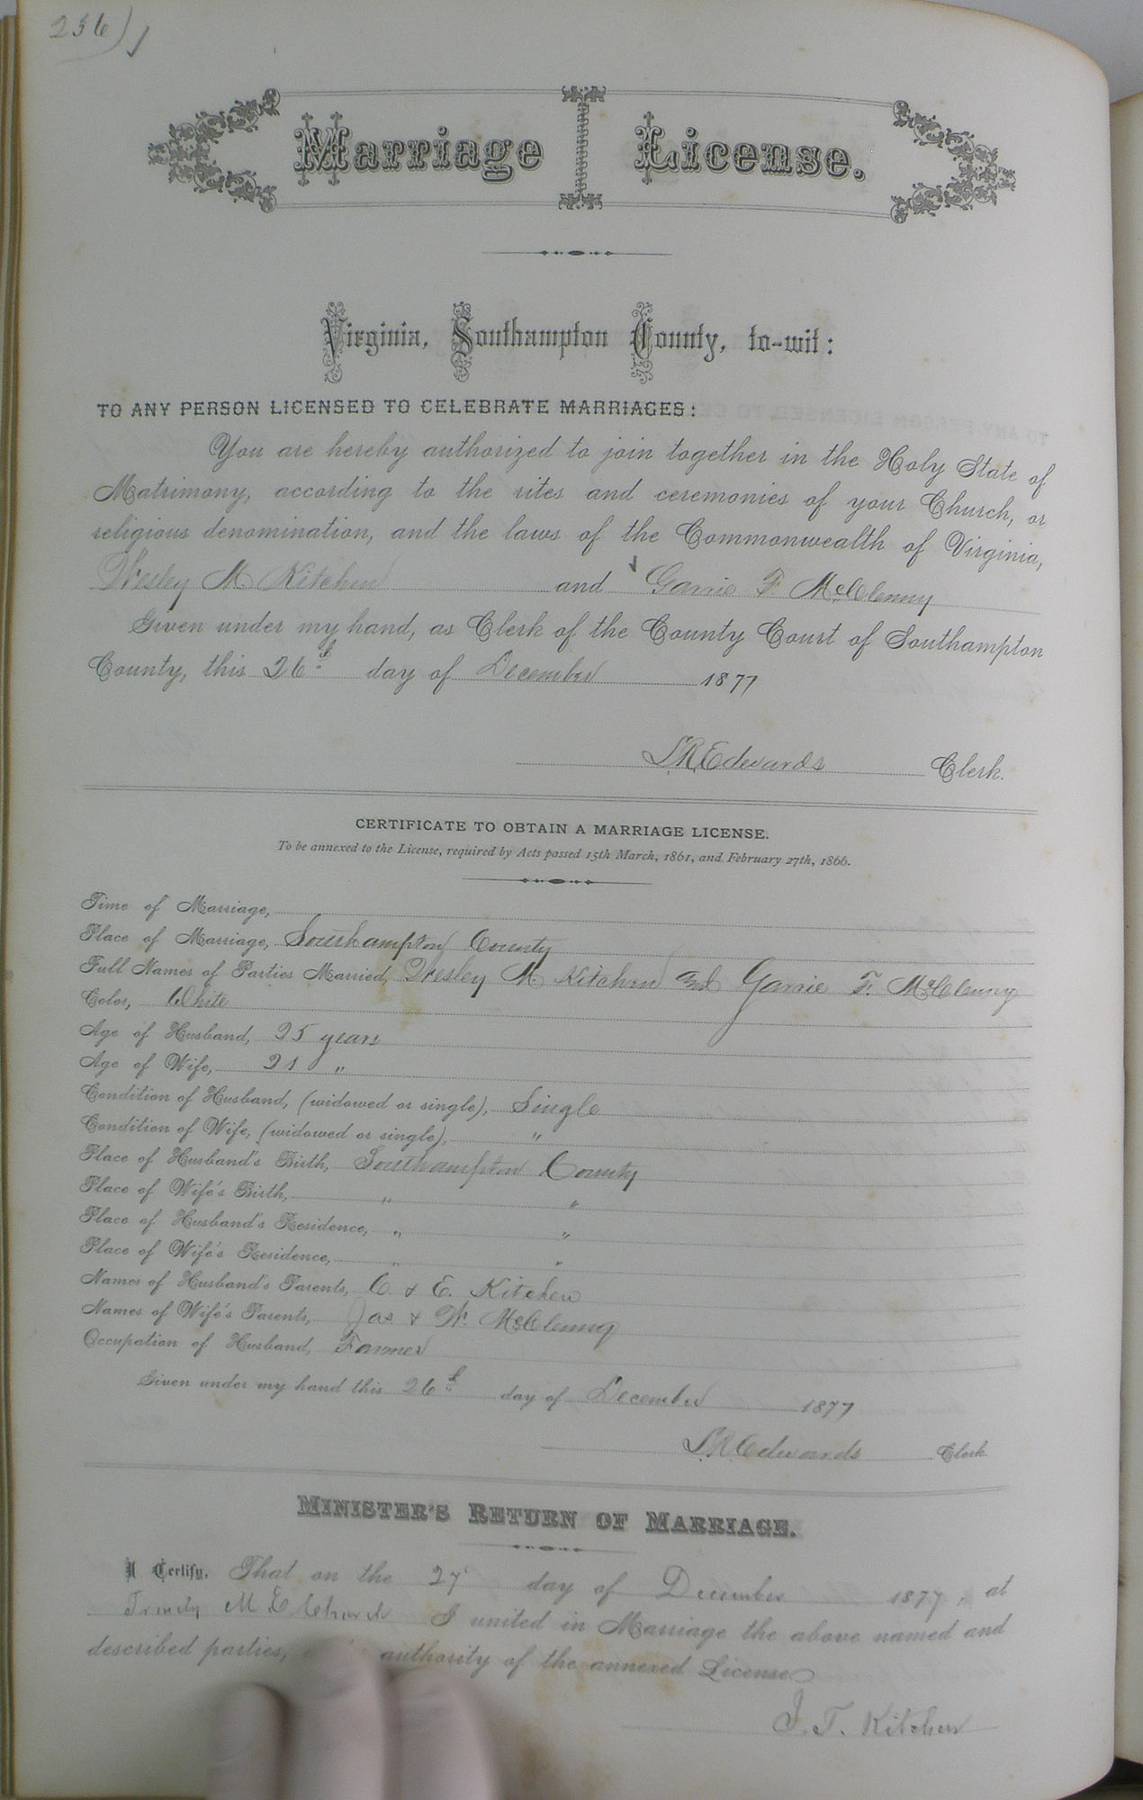 256
Marriage License.
Virginia, Southampton County, to-wit:
TO ANY PERSON LICENSED TO CELEBRATE MARRIAGES:
You are hereby authorized to join together in the Holy State of
Matrimony, according to the rites and ceremonies of your Church, or
religious denomination, and the laws of the Commonwealth of Virginia,
Wesley M Kitchen and Garrie F. McClenny
Given under my hand, as Clerk of the County Court of Southampton
County, this 26th day of December 1877
L.R. Edwards Clerk.
CERTIFICATE TO OBTAIN A MARRIAGE LICENSE.
To be annexed to the License, required by Acts passed 15th March, 1861, and February 27th, 1866.
Time of Marriage,
Place of Marriage, Southampton County
Full Names of Parties Married, Wesley M Kitchen and Garrie F. McClenny
Color, White
Age of Husband, 25 years
Age of Wife, 21 "
Condition of Husband, (widowed or single), Single
Condition of Wife, (widowed or single), "
Place of Husband's Birth, Southampton County
Place of Wife's Birth, " "
Place of Husband's Residence, " "
Place of Wife's Residence, " "
Names of Husband's Parents, C. & E. Kitchen
Names of Wife's Parents, Jas & W. McClenny
Occupation of Husband, Farmer
Given under my hand this 26th day of December 1877
L.R. Edwards Clerk
MINISTER'S RETURN OF MARRIAGE.
I Certify, That on the 27 day of December 1877, at
Trinity M E Church I united in Marriage the above named and
described parties, authority of the annexed License
J. T. Kitchen